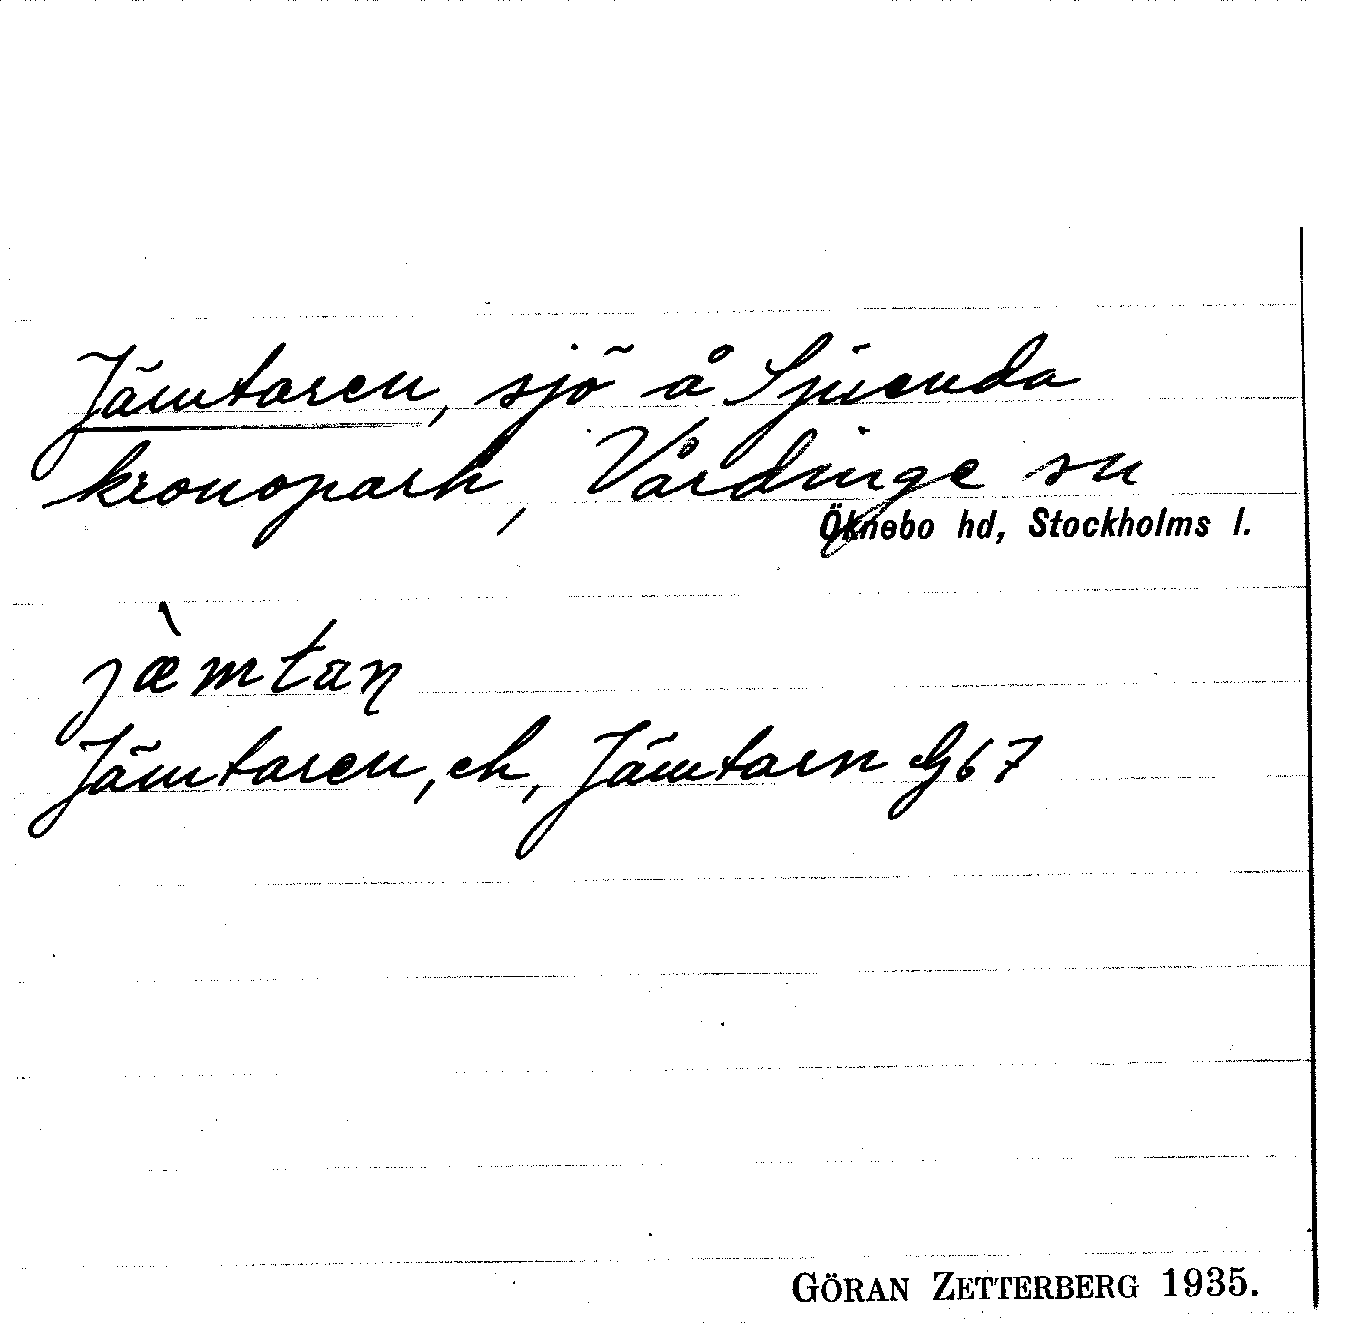 Jämtaren, sjö å Sjuenda
kronopark, Vårdinge sn
Öknebo hd, Stockholms l.
jæ̀mtaṇ
Jämtaren, ek, Jämtarn G67
GÖRAN ZETTERBERG 1935.